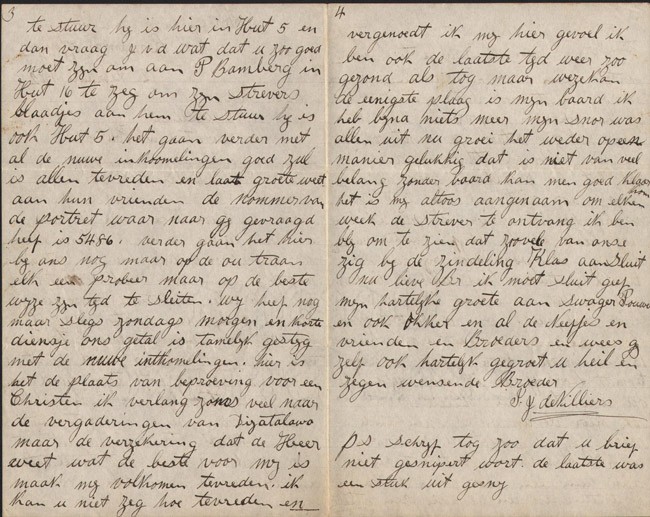 3
te stuur hy is hier in Hut 5 en
dan vraag J v d wat dat u zoo goed
moet zyn om aan P Bamberg in
Hut 16 te zeg om zyn Strevers
blaadjes aan hem te stuur hy is
ook Hut 5. het gaan verder met
al de nuwe inkoomelingen goed zul
is allen tevreden en laat grotte weet
aan hun vrienden de nommer van
de portret waar naar gy gevraagd
heef is 5486. verder gaan het hier
by ons nog maar op de ou traan
elk een probeer maar op de beste
wyze zyn tyd te sleiten. wy heef nog
maar slegs zondags morgen en korte
diensje ons getal is tamelyk gestyg
met de nuwe inkhomelingen. hier is
het de plaats van beproeving voor een
Christen ik verlang zoms veel naar
de vergaderingen van Dizatalawa
maar de verzekering dat de Heer
weet wat de beste voor my is
maak my volkomen tevreden. ik
kan u niet zeg hoe tevreden en
4
vergenoedt ik my hier gevoel ik
ben ook de laatste tyd weer zoo
gezond als tog maar wezekan
de eenigste plaag is myn baard ik
heb byna niets meer myn snor was
allen uit nu groei het weder op een
manier gelukkig dat is niet van veel
belang zonder baard kan men goed klaar
kom
het is my altoos aangenaam om elken
week de Strever te ontvang ik ben
bly om te zien dat zoovele van onse
zig by de zindeling Klas aan sluit
nu lieve Br ik moet sluit geef
myn hartelyke groete aan Swager
en ook Okker en al de Neefjes en
vrienden en Broeders en wees g
zelf ook hartelyk gegroet u heil en
zegen wensende Broeder
P J de Villiers
P.S. Schryf tog zoo dat u brief
niet gesnipert wort. de laatste was
een stuk uit gesny